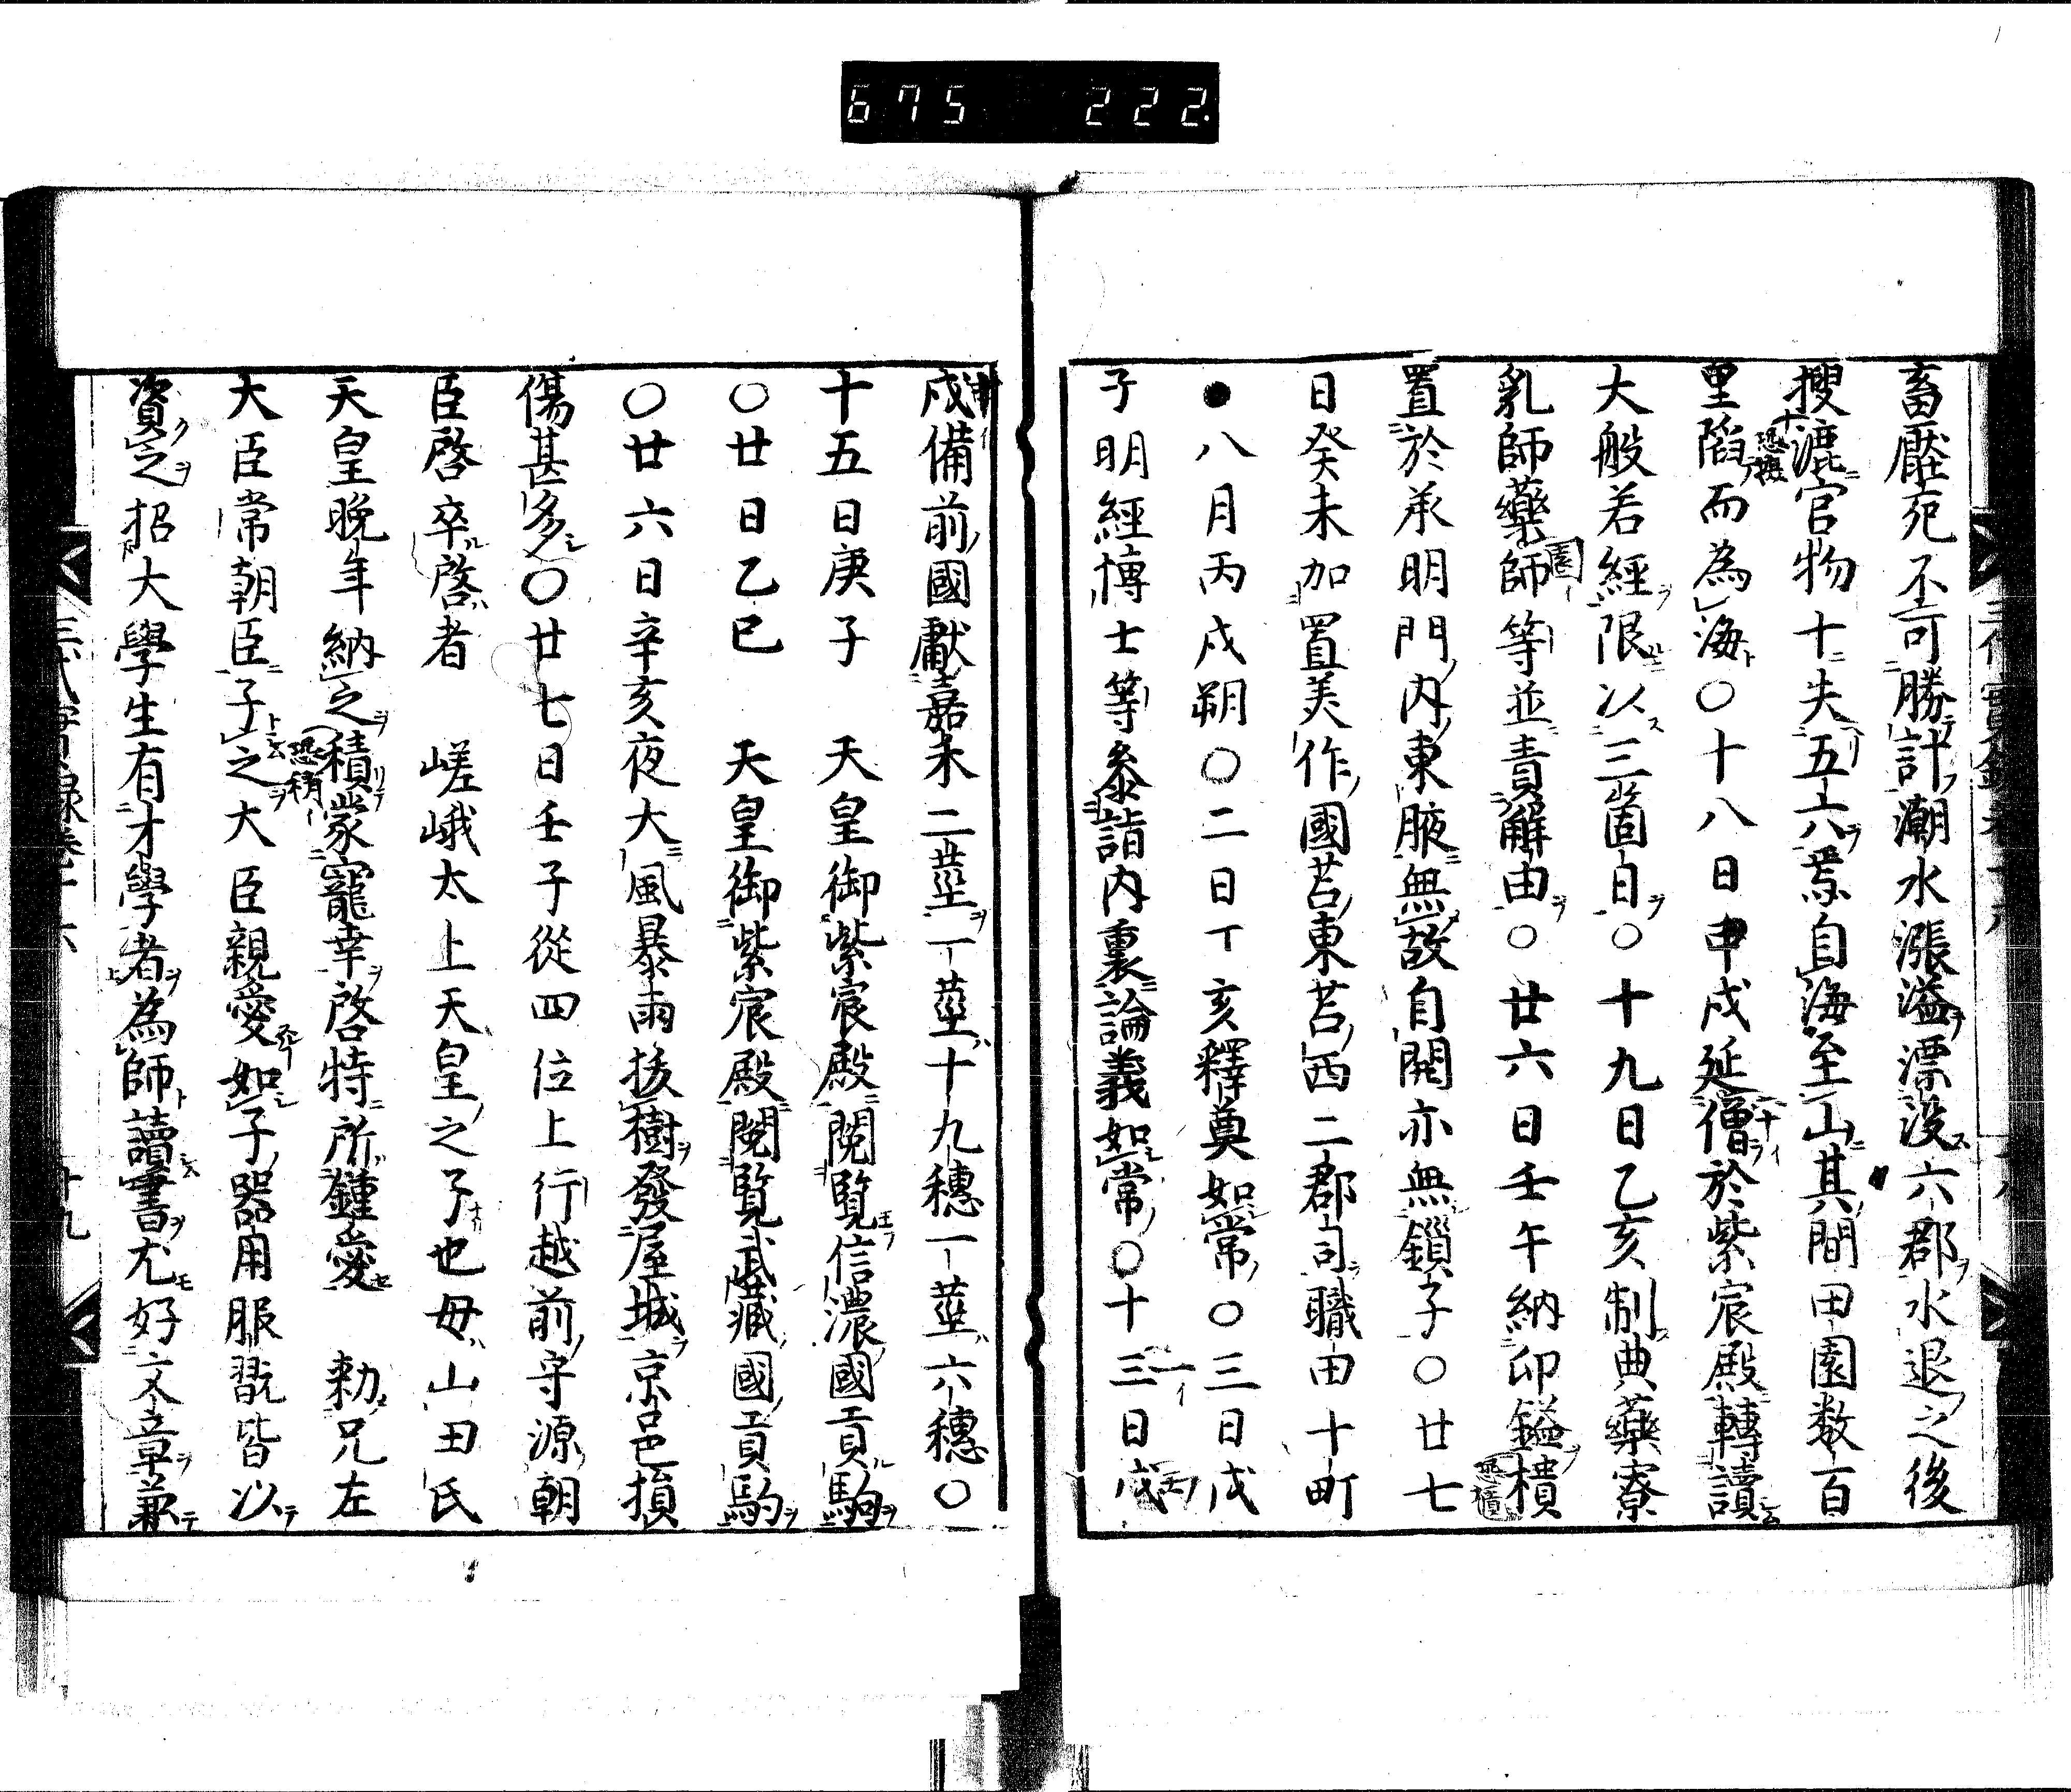 675 222.
畜壓死不可勝計潮水漲溢漂没六郡水退之後
搜漉官物十失五六焉自海至山其間田園数百
里陷而為海〇十八日甲戌延僧於紫宸殿轉讀
大般若經限以三箇日〇十九日乙亥制典藥寮
乳師藥師等並責解由〇廿六日壬午納印鎰樻
置於承明門内東腋無故自開亦無鎖子〇廿七
日癸未加置美作國苫東苫西二郡司職田十町
●八月丙戌朔〇二日丁亥釋奠如常〇三日戊
子明經博士等叅詣内裏論義如常〇十三日戊
戌備前國獻嘉禾二莖一莖十九穗一莖六穗〇
十五日庚子　天皇御紫宸殿閲覧信濃國貢駒
〇廿日乙巳　天皇御紫宸殿閲覧武藏國貢駒
〇廿六日辛亥夜大風暴雨抜樹發屋城京邑損
傷甚多〇廿七日壬子從四位上行越前守源朝
臣啓卒啓者　嵯峨太上天皇之子也母山田氏
天皇晩年納之積蒙寵幸啓特所鍾愛　勅兄左
大臣常朝臣子之大臣親愛如子器用服翫皆以
資之招大學生有才學者為師讀書尤好文章兼